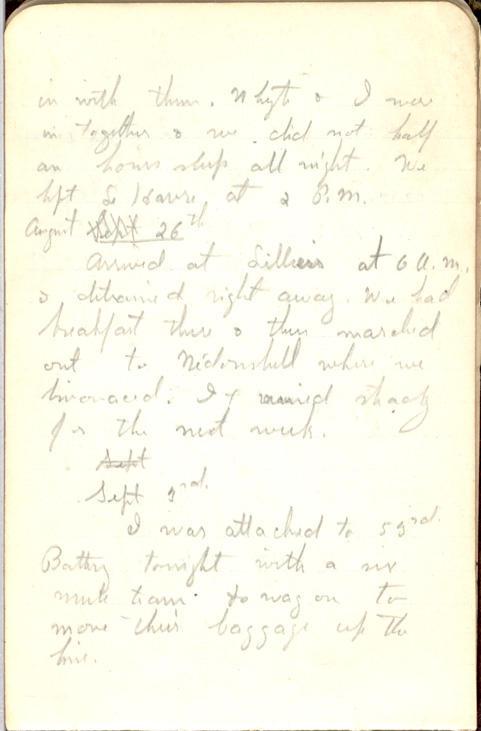 in with them. Whyte & I were
in together & we did not half
an hours sleep all night. We
left Le Havre at 2 P.M.
August Sept 26th
Arrived at Lilliers at 6 A.M.
& detrained right away. We had
breakfast there & then marched
out to Nédonshell where we
bivouaced. It rained steady
for the next week.
Sept
Sept 3rd.
I was attached to 53rd.
Battery tonight with a six
mule team & wagon to
move their baggage up the
line.